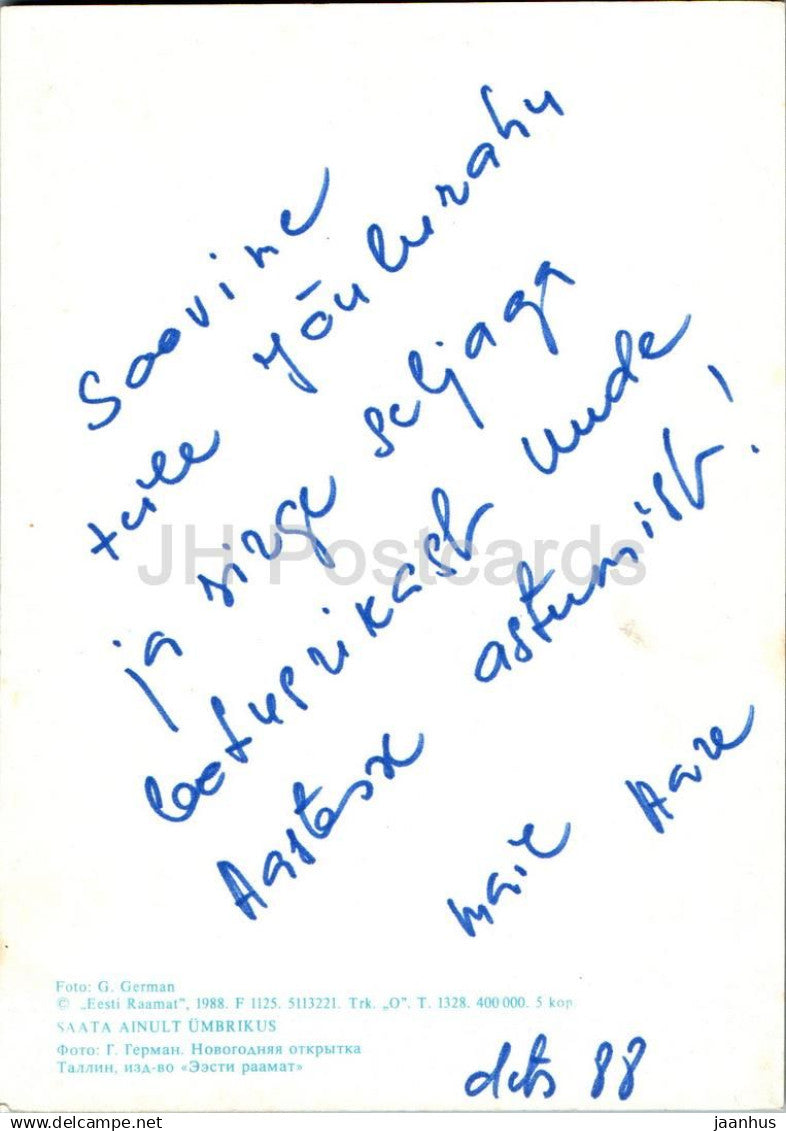 Soovime
teile jõulurahu
ja sirge seljaga
lootusrikast uude
Aastasse astumist!
Maie Aare
dets 88
Foto: G. German
© „Eesti Raamat”, 1988. F 1125. 5113221. Trk. „O”. T. 1328. 400 000. 5 kop.
SAATA AINULT ÜMBRIKUS
Фото: Г. Герман. Новогодняя открытка
Таллин, изд-во «Ээсти раамат»
JH Postcards
jaanhus